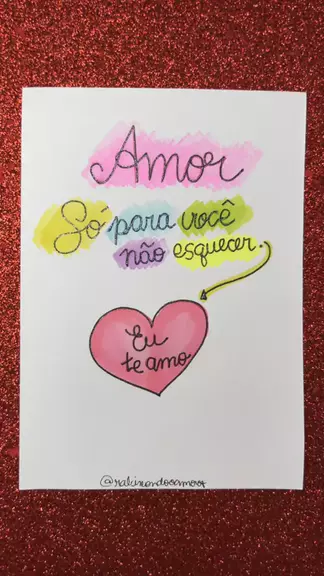 Amor
Só para você
não esquecer.
Eu
te amo